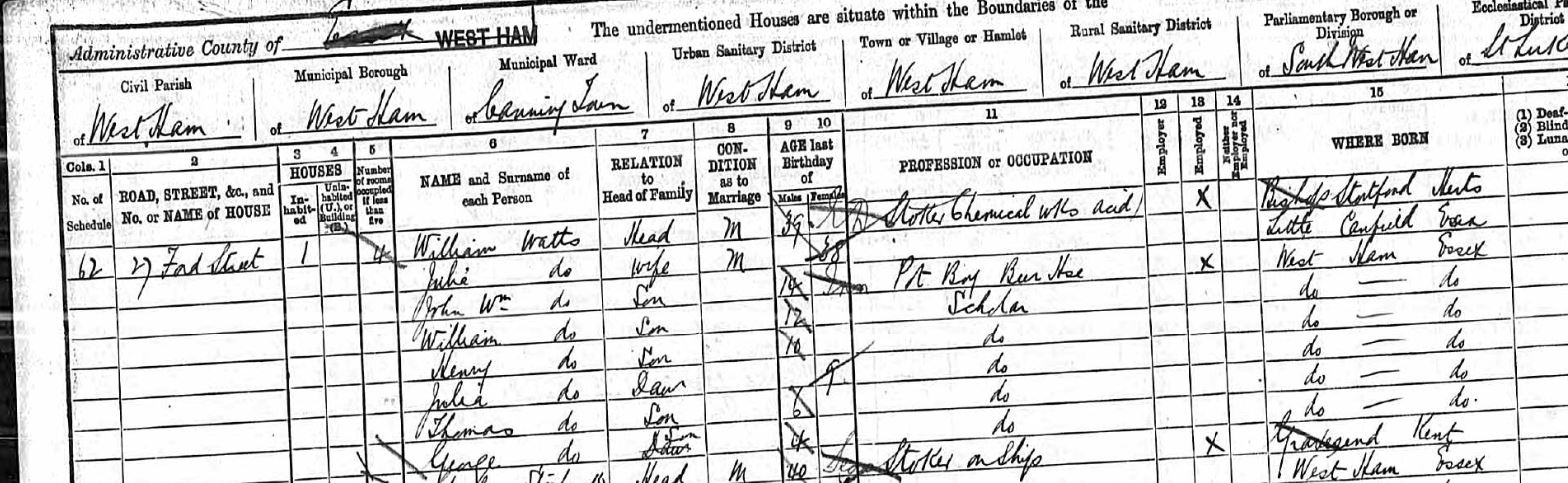 Administrative County of WEST HAM The undermentioned Houses are situate within the Boundaries of the
Civil Parish Municipal Borough Municipal Ward Urban Sanitary District Town or Village or Hamlet Rural Sanitary District Parliamentary Borough or Division Ecclesiastical District
of West Ham of West Ham of Canning Town of West Ham of West Ham of West Ham of South West Ham of St Luk
Cols. 1 2 3 4 5 6 7 8 9 10 11 12 13 14 15
No. of Schedule ROAD, STREET, &c., and No. or NAME of HOUSE HOUSES Inhabited Uninhabited (U.), or Building (B.) Number of rooms occupied if less than five NAME and Surname of each Person RELATION to Head of Family CONDITION as to Marriage AGE last Birthday of Males Females PROFESSION or OCCUPATION Employer Employed Neither Employer nor Employed WHERE BORN (1) Deaf- (2) Blind (3) Luna
62 27 Ford Street 1 4 William Watts Head M 39 Stoker Chemical Wks acid) X Bishops Stortford Herts
Julia do Wife M 38 Little Canfield Essex
John Wm do Son 14 Pot Boy Beer Hse X West Ham Essex
William do Son 12 Scholar do — do
Henry do Son 10 do do — do
Julia do Daur 9 do do — do
Thomas do Son 6 do do — do
George do Son Daur 4 do do — do.
Head M 40 Stoker on Ship X Gravesend Kent
West Ham Essex